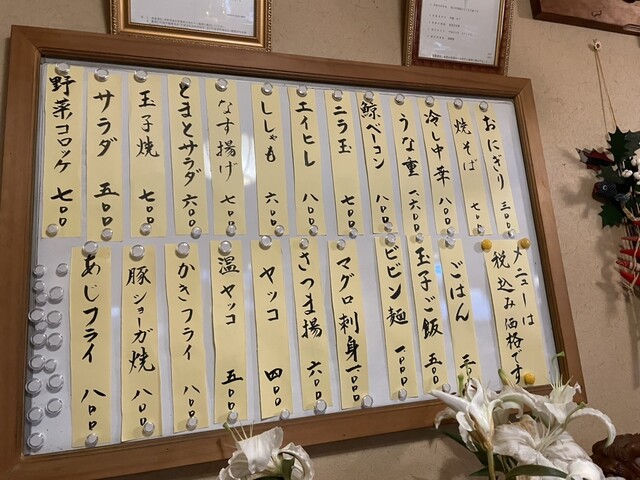 おにぎり 三〇〇
焼そば 七〇〇
冷し中華 八〇〇
うな重 一六〇〇
鯨ベーコン 八〇〇
ニラ玉 七〇〇
エイヒレ 八〇〇
ししゃも 六〇〇
なす揚げ 七〇〇
とまとサラダ 六〇〇
玉子焼 七〇〇
サラダ 五〇〇
野菜コロッケ 七〇〇
メニューは
税込み価格です
ごはん
玉子ご飯 五〇〇
ビビン麺 一〇〇〇
マグロ刺身 一〇〇〇
さつま揚 六〇〇
ヤッコ 四〇〇
温ヤッコ 五〇〇
かきフライ 八〇〇
豚ショーガ焼 八〇〇
あじフライ 八〇〇